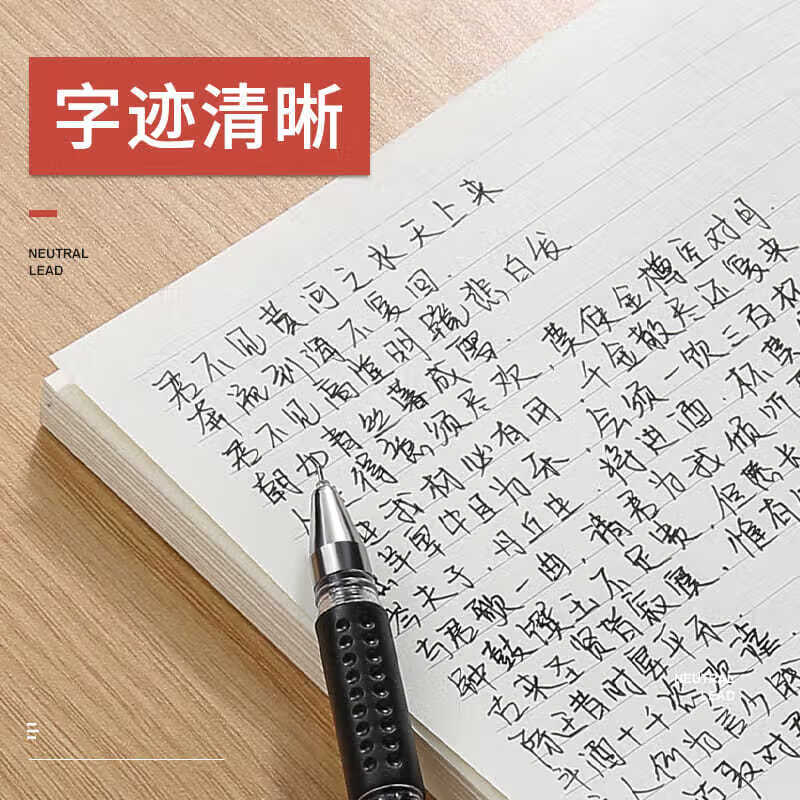 字迹清晰
NEUTRAL
LEAD
君不见黄河之水天上来
奔流到海不复回.
君不见高堂明镜悲白发
朝如青丝暮成雪.
得意须尽欢，莫使金樽空对月.
我材必有用.千金散尽还复来
羊宰牛且为乐，会须一饮三百杯
岑夫子.丹丘生.将进酒.杯莫
与君歌一曲，请君为我倾耳
钟鼓馔玉不足贵.但愿长
古来圣贤皆寂寞，惟有
陈王昔时宴平乐.
斗酒十千恣欢谑.
主人何为言少
NEUTRAL
LEAD